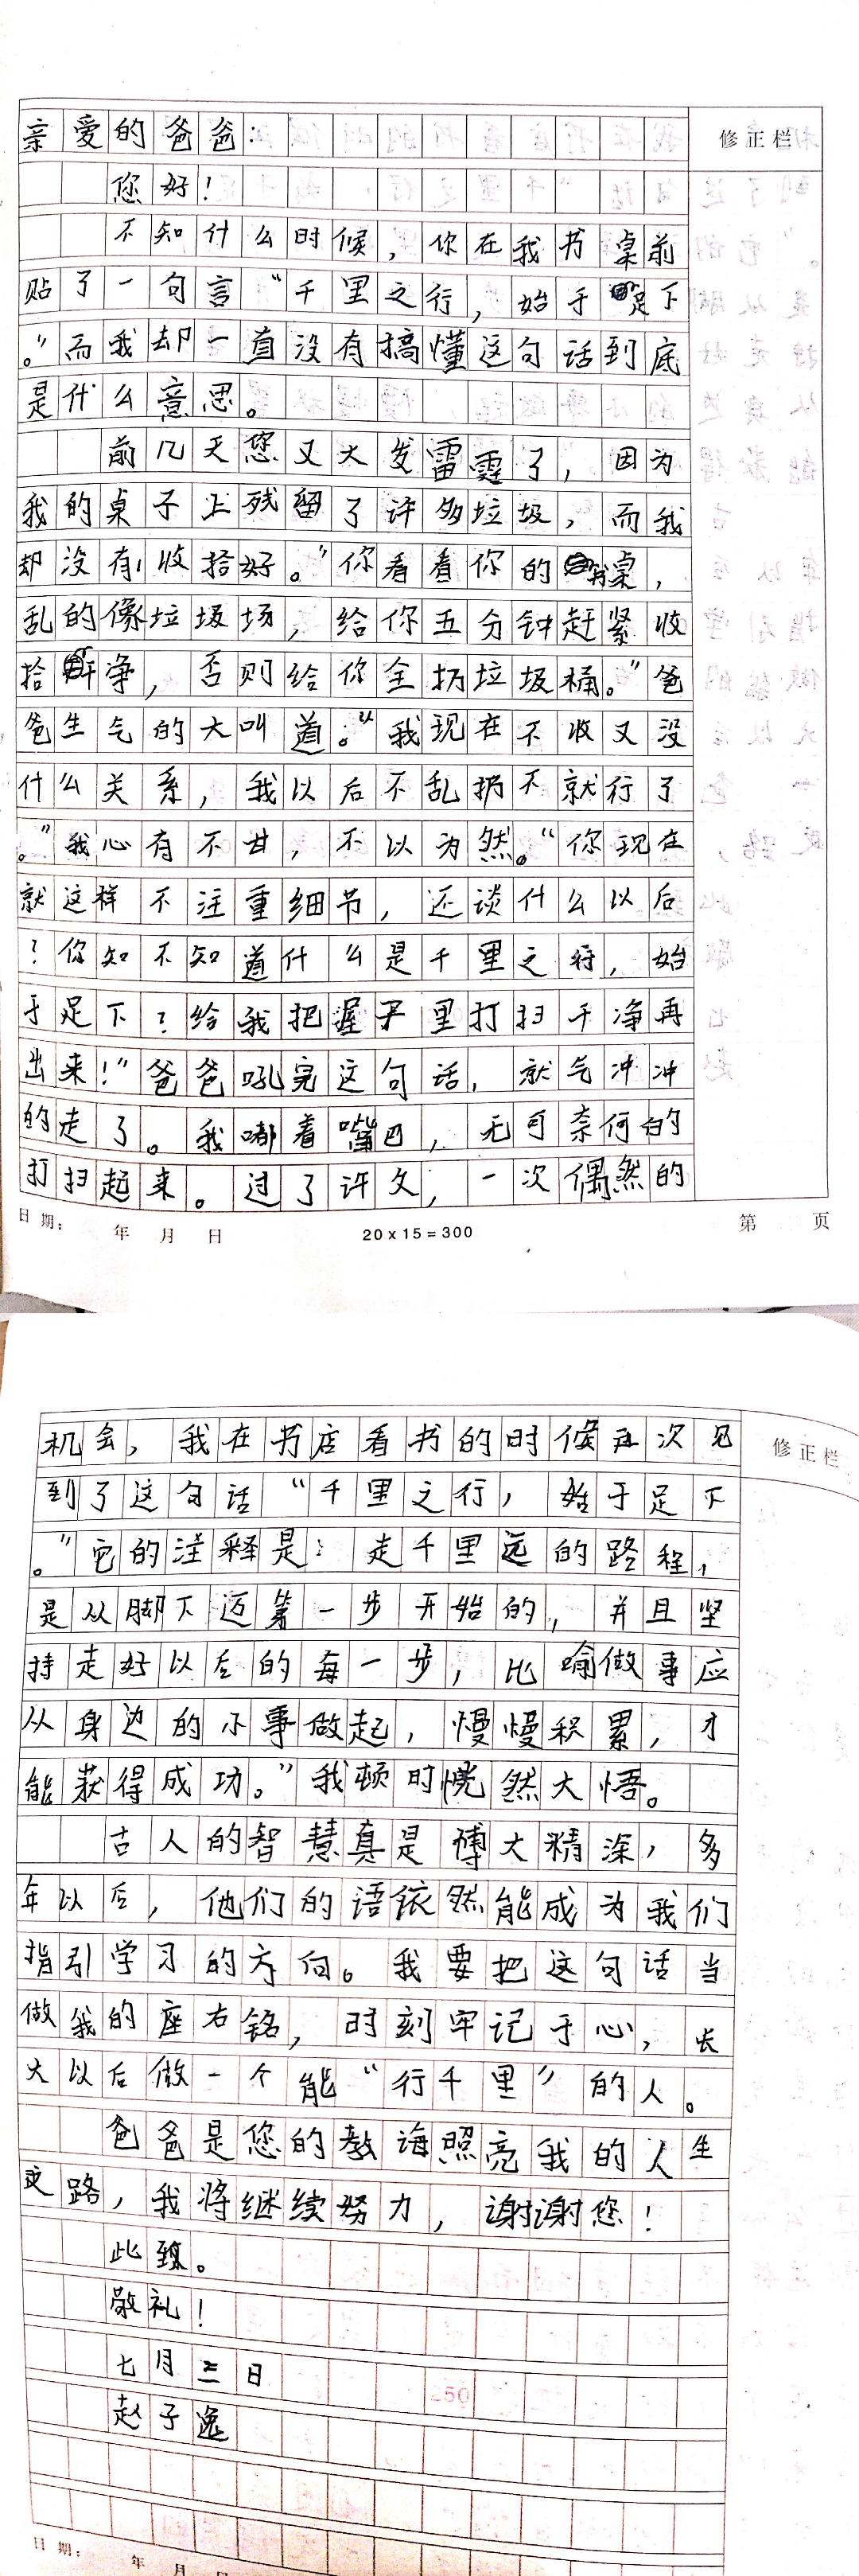 修正栏
亲爱的爸爸:
您好!
不知什么时候,你在我书桌前
贴了一句言“千里之行,始于足下
。”而我却一直没有搞懂这句话到底
是什么意思。
前几天您又大发雷霆了,因为
我的桌子上残留了许多垃圾,而我
却没有收拾好。”你看看你的书桌,
乱的像垃圾场,给你五分钟赶紧收
拾干净,否则给你全扔垃圾桶。”爸
爸生气的大叫道。“我现在不收又没
什么关系,我以后不乱扔不就行了
。”我心有不甘,不以为然。“你现在
就这样不注重细节,还谈什么以后
?你知不知道什么是千里之行,始
于足下?给我把握子里打扫干净再
出来!”爸爸吼完这句话,就气冲冲
的走了。我嘟着嘴巴,无可奈何的
打扫起来。过了许久,一次偶然的
日期: 年 月 日 20x15=300 第 页
机会,我在书店看书的时候再次见
修正栏
到了这句话“千里之行,始于足下
。”它的注释是:走千里远的路程,
是从脚下迈第一步开始的,并且坚
持走好以后的每一步,比喻做事应
从身边的小事做起,慢慢积累,才
能获得成功。”我顿时恍然大悟。
古人的智慧真是博大精深,多
年以后,他们的语依然能成为我们
指引学习的方向。我要把这句话当
做我的座右铭,时刻牢记于心,长
大以后做一个能“行千里”的人。
爸爸是您的教诲照亮我的人生
之路,我将继续努力,谢谢您!
此致。
敬礼!
七月三日
赵子逸
日期: 年 月 日